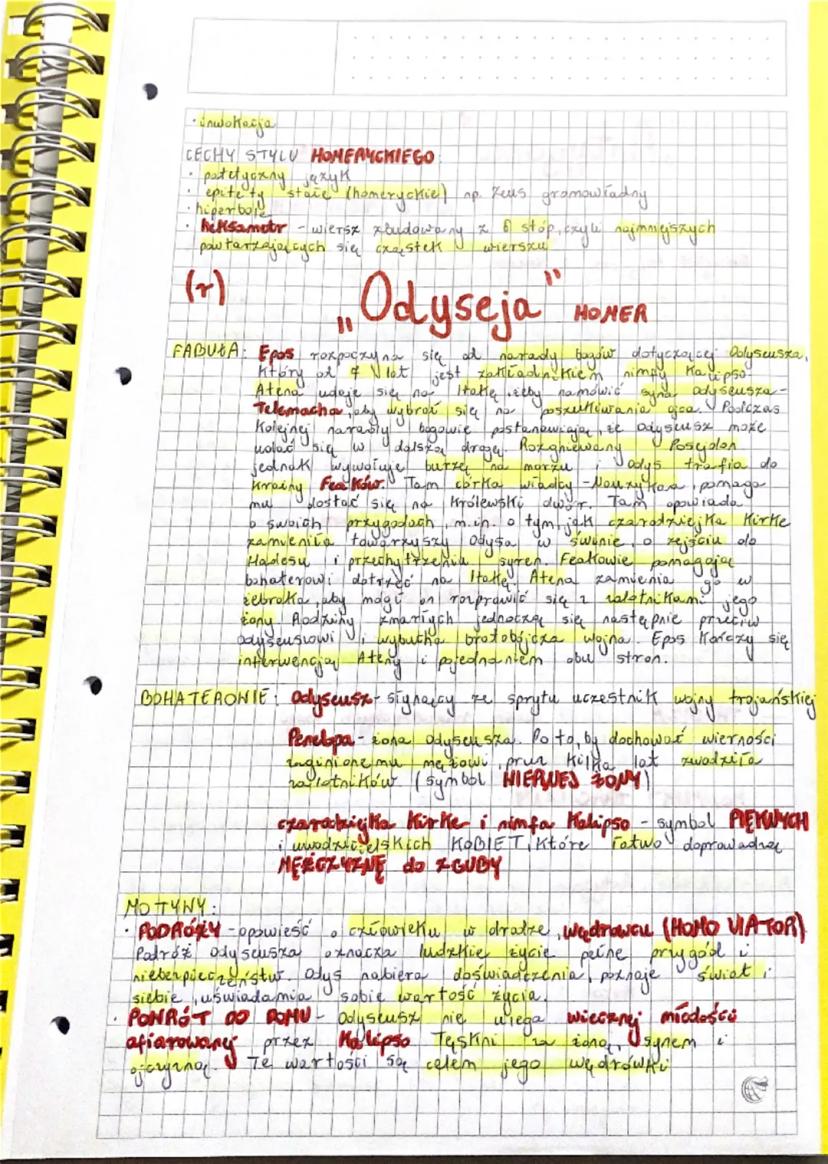 · inwokacja
CECHY STYLU HOMERYCKIEGO:
· patetyczny język
· epitety stałe (homeryckie) np. Zeus gromowładny
· hiperbole
· heksametr - wiersz zbudowany z 6 stóp, czyli najmniejszych
powtarzających się cząstek w wierszu
(r)
„Odyseja" HOMER
FABUŁA: Epos rozpoczyna się od narady bogów dotyczącej Odyseusza,
który od 7 lat jest zakładnikiem nimfy Kalipso
Atena udaje się na Itakę, żeby namówić syna Odyseusza -
Telemacha, aby wybrał się na poszukiwania ojca. Podczas
kolejnej narady bogowie postanawiają, że Odyseusz może
udać się w dalszą drogę. Rozgniewany Posejdon
jednak wywołuje burzę na morzu i Odys trafia do
krainy Feaków. Tam córka władcy - Nauzykaa, pomaga
mu dostać się na królewski dwór. Tam opowiada
o swoich przygodach, m.in. o tym, jak czarodziejka Kirke
zamieniła towarzyszy Odysa w świnie, o zejściu do
Hadesu i przechytrzeniu syren. Feakowie pomagają
bohaterowi dotrzeć na Itakę. Atena zamienia go w
żebraka, aby mógł on rozprawić się z zalotnikami jego
żony. Rodziny zmarłych jednoczą się następnie przeciw
Odyseusowi i wybucha bratobójcza wojna. Epos kończy się
interwencją Ateny i pojednaniem obu stron.
BOHATEROWIE: Odyseusz - słynący ze sprytu uczestnik wojny trojańskiej
Penelopa - żona Odyseusza. Po to, by dochować wierności
zaginionemu mężowi, przez kilka lat zwodziła
zalotników (symbol WIERNEJ ŻONY)
czarodziejka Kirke i nimfa Kalipso - symbol PIĘKNYCH
i uwodzicielskich KOBIET, które łatwo doprowadzą
MĘŻCZYZNĘ do ZGUBY
MOTYWY:
· PODRÓŻY - opowieść o człowieku w drodze, wędrowcu (HOMO VIATOR)
Podróż Odyseusza oznacza ludzkie życie pełne przygód i
niebezpieczeństw. Odys nabiera doświadczenia, poznaje świat i
siebie, uświadamia sobie wartość życia.
· POWRÓT DO DOMU - Odyseusz nie ulega wiecznej młodości
ofiarowanej przez Kalipso. Tęskni za żoną, synem i
ojczyzną. Te wartości są celem jego wędrówki